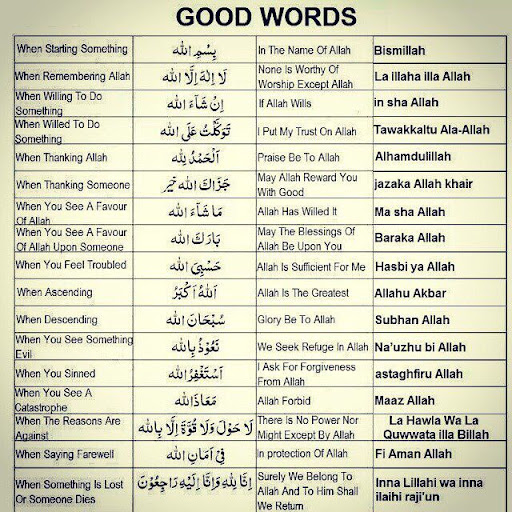 GOOD WORDS
When Starting Something بِسْمِ الله In The Name Of Allah Bismillah
When Remembering Allah لَا إِلٰهَ إِلَّا الله None Is Worthy Of
Worship Except Allah La illaha illa Allah
When Willing To Do
Something إِنْ شَآءَ الله If Allah Wills in sha Allah
When Willed To Do
Something تَوَكَّلْتُ عَلَى الله I Put My Trust On Allah Tawakkaltu Ala-Allah
When Thanking Allah اَلْحَمْدُ لِلّٰه Praise Be To Allah Alhamdulillah
When Thanking Someone جَزَاكَ الله خَيْر May Allah Reward You
With Good jazaka Allah khair
When You See A Favour
Of Allah مَا شَآءَ الله Allah Has Willed It Ma sha Allah
When You See A Favour
Of Allah Upon Someone بَارَكَ الله May The Blessings Of
Allah Be Upon You Baraka Allah
When You Feel Troubled حَسْبِيَ الله Allah Is Sufficient For Me Hasbi ya Allah
When Ascending اَللهُ اَكْبَرُ Allah Is The Greatest Allahu Akbar
When Descending سُبْحَانَ الله Glory Be To Allah Subhan Allah
When You See Something
Evil نَعُوْذُ بِالله We Seek Refuge In Allah Na'uzhu bi Allah
When You Sinned اَسْتَغْفِرُ الله I Ask For Forgiveness
From Allah astaghfiru Allah
When You See A
Catastrophe مَعَاذَالله Allah Forbid Maaz Allah
When The Reasons Are
Against لَا حَوْلَ وَلَا قُوَّةَ إِلَّا بِالله There Is No Power Nor
Might Except By Allah La Hawla Wa La
Quwwata illa Billah
When Saying Farewell فِيْ اَمَانِ الله In protection Of Allah Fi Aman Allah
When Something Is Lost
Or Someone Dies اِنَّا لِلّٰهِ وَاِنَّا اِلَيْهِ رَاجِعُوْنَ Surely We Belong To
Allah And To Him Shall
We Return Inna Lillahi wa inna
ilaihi raji'un